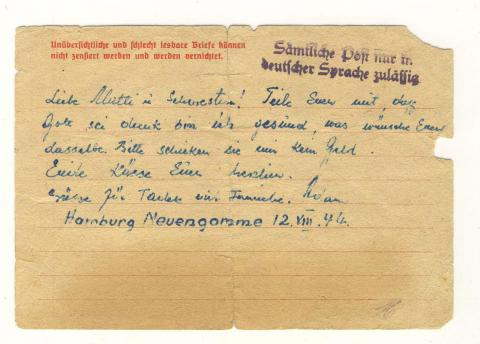 Unübersichtliche und schlecht lesbare Briefe können
nicht zensiert werden und werden vernichtet.
Sämtliche Post nur in
deutscher Sprache zulässig
Liebe Mutti u Schwestern! Teile Euer mit, das
Gott sei dank bin ich gesund, was wünsche Euer
dasselbe. Bitte schicken sie mir kein Geld.
Küsse Euer herzlich.
Grüsse für Familie.
Hamburg Neuengamme 12. VIII. 44.